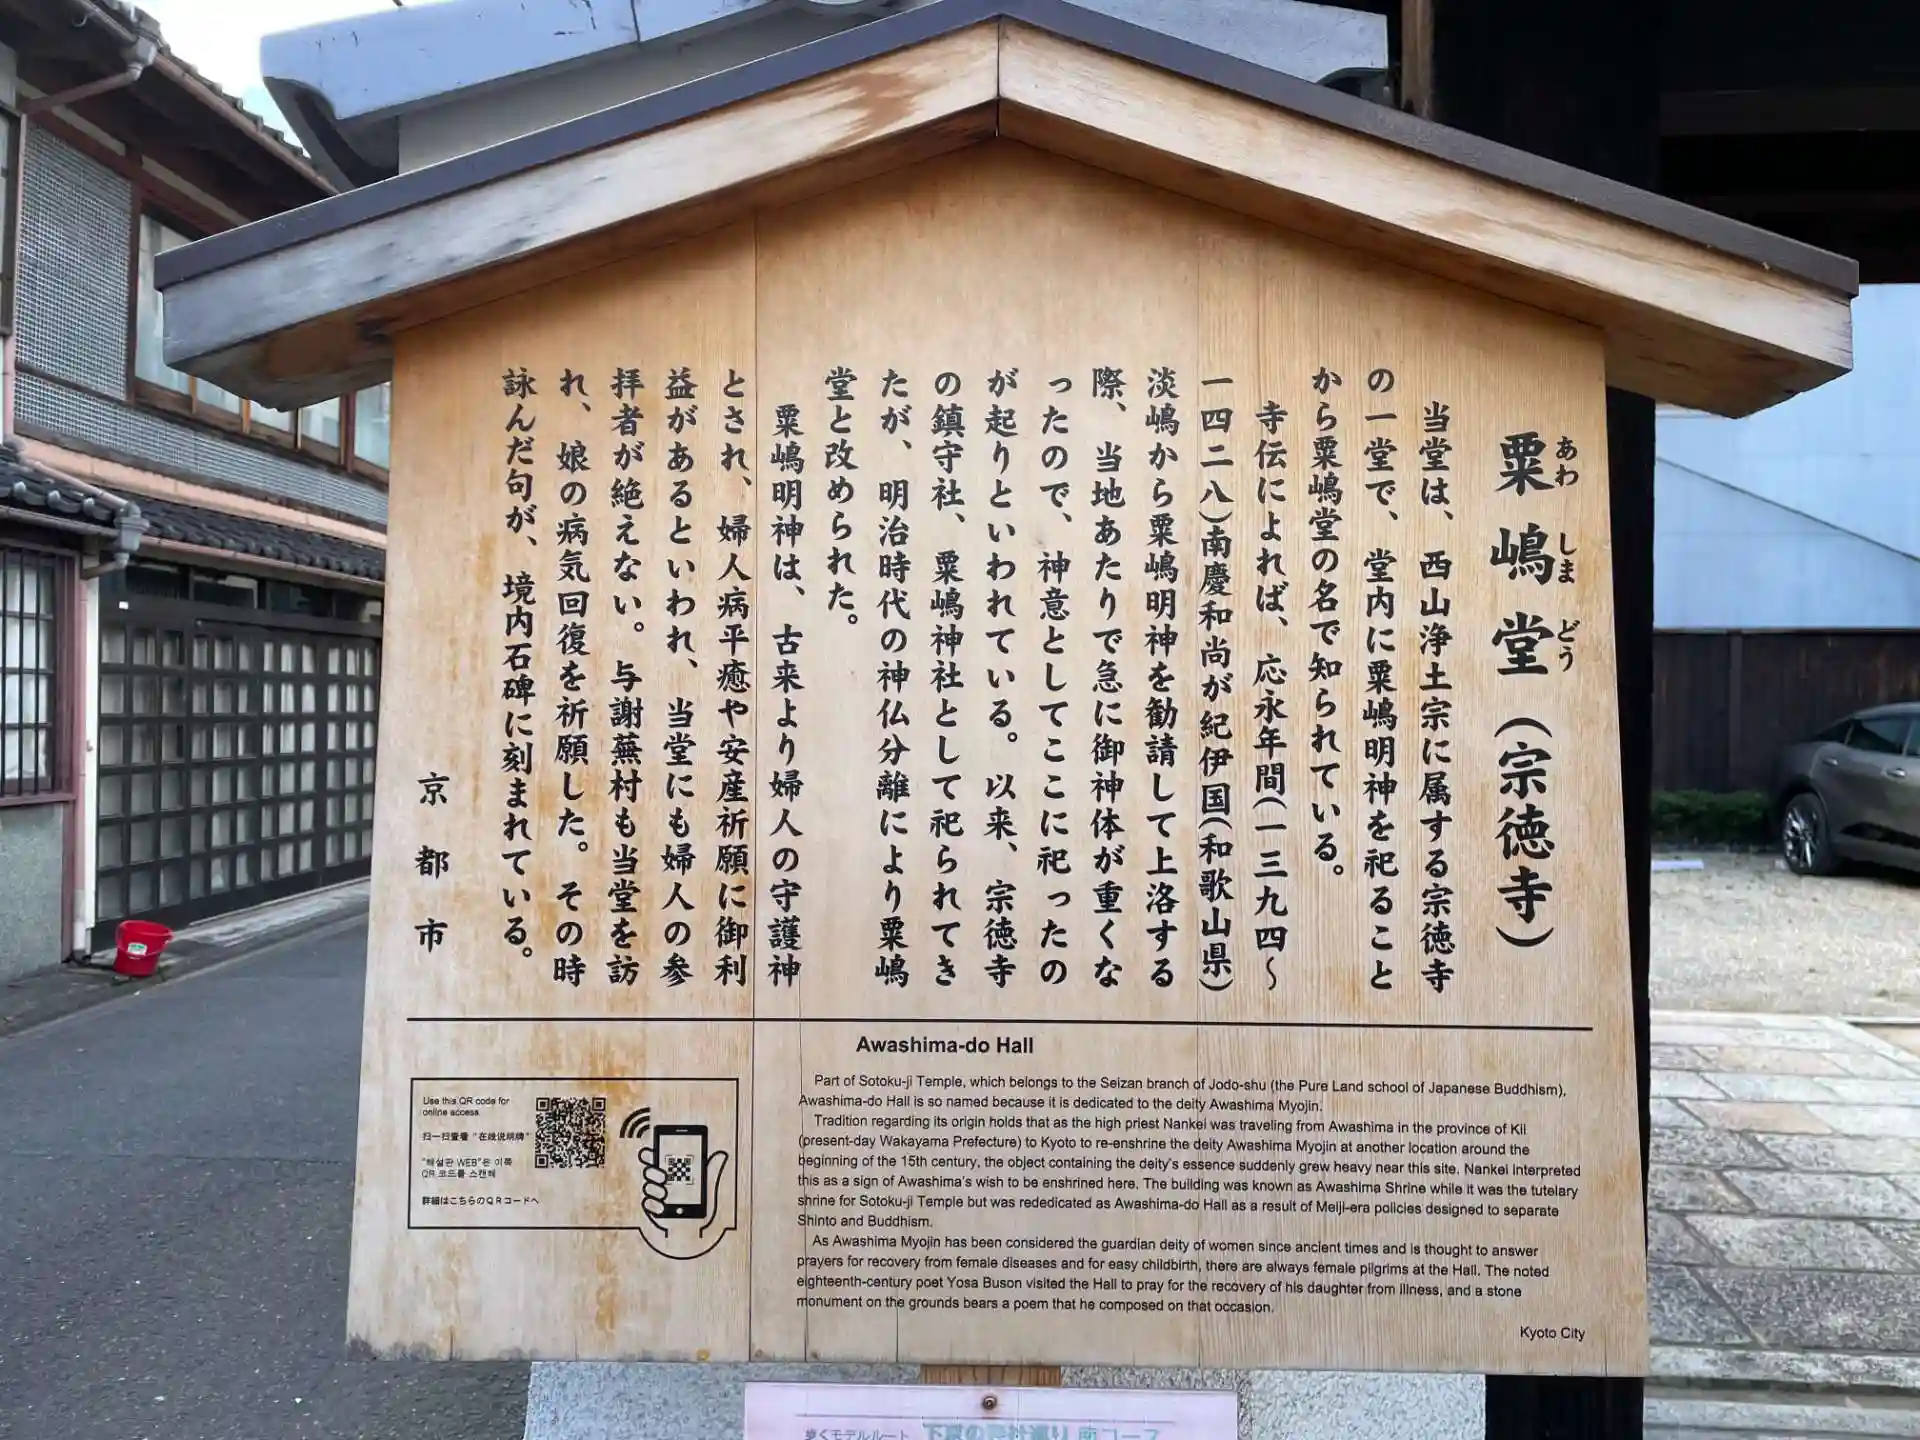 粟嶋堂(宗徳寺)
あわ しま どう
当堂は、西山浄土宗に属する宗徳寺
の一堂で、堂内に粟嶋明神を祀ること
から粟嶋堂の名で知られている。
寺伝によれば、応永年間(一三九四〜
一四二八)南慶和尚が紀伊国(和歌山県)
淡嶋から粟嶋明神を勧請して上洛する
際、当地あたりで急に御神体が重くな
ったので、神意としてここに祀ったの
が起りといわれている。以来、宗徳寺
の鎮守社、粟嶋神社として祀られてき
たが、明治時代の神仏分離により粟嶋
堂と改められた。
粟嶋明神は、古来より婦人の守護神
とされ、婦人病平癒や安産祈願に御利
益があるといわれ、当堂にも婦人の参
拝者が絶えない。与謝蕪村も当堂を訪
れ、娘の病気回復を祈願した。その時
詠んだ句が、境内石碑に刻まれている。
京都市
Awashima-do Hall
Part of Sotoku-ji Temple, which belongs to the Seizan branch of Jodo-shu (the Pure Land school of Japanese Buddhism),
Awashima-do Hall is so named because it is dedicated to the deity Awashima Myojin.
Tradition regarding its origin holds that as the high priest Nankei was traveling from Awashima in the province of Kii
(present-day Wakayama Prefecture) to Kyoto to re-enshrine the deity Awashima Myojin at another location around the
beginning of the 15th century, the object containing the deity's essence suddenly grew heavy near this site. Nankei interpreted
this as a sign of Awashima's wish to be enshrined here. The building was known as Awashima Shrine while it was the tutelary
shrine for Sotoku-ji Temple but was rededicated as Awashima-do Hall as a result of Meiji-era policies designed to separate
Shinto and Buddhism.
As Awashima Myojin has been considered the guardian deity of women since ancient times and is thought to answer
prayers for recovery from female diseases and for easy childbirth, there are always female pilgrims at the Hall. The noted
eighteenth-century poet Yosa Buson visited the Hall to pray for the recovery of his daughter from illness, and a stone
monument on the grounds bears a poem that he composed on that occasion.
Kyoto City
Use this QR code for
online access
扫一扫查看 "在线说明牌"
"해설판 WEB"은 이쪽
QR 코드를 스캔해
詳細はこちらのQRコードへ
歩くモデルルート